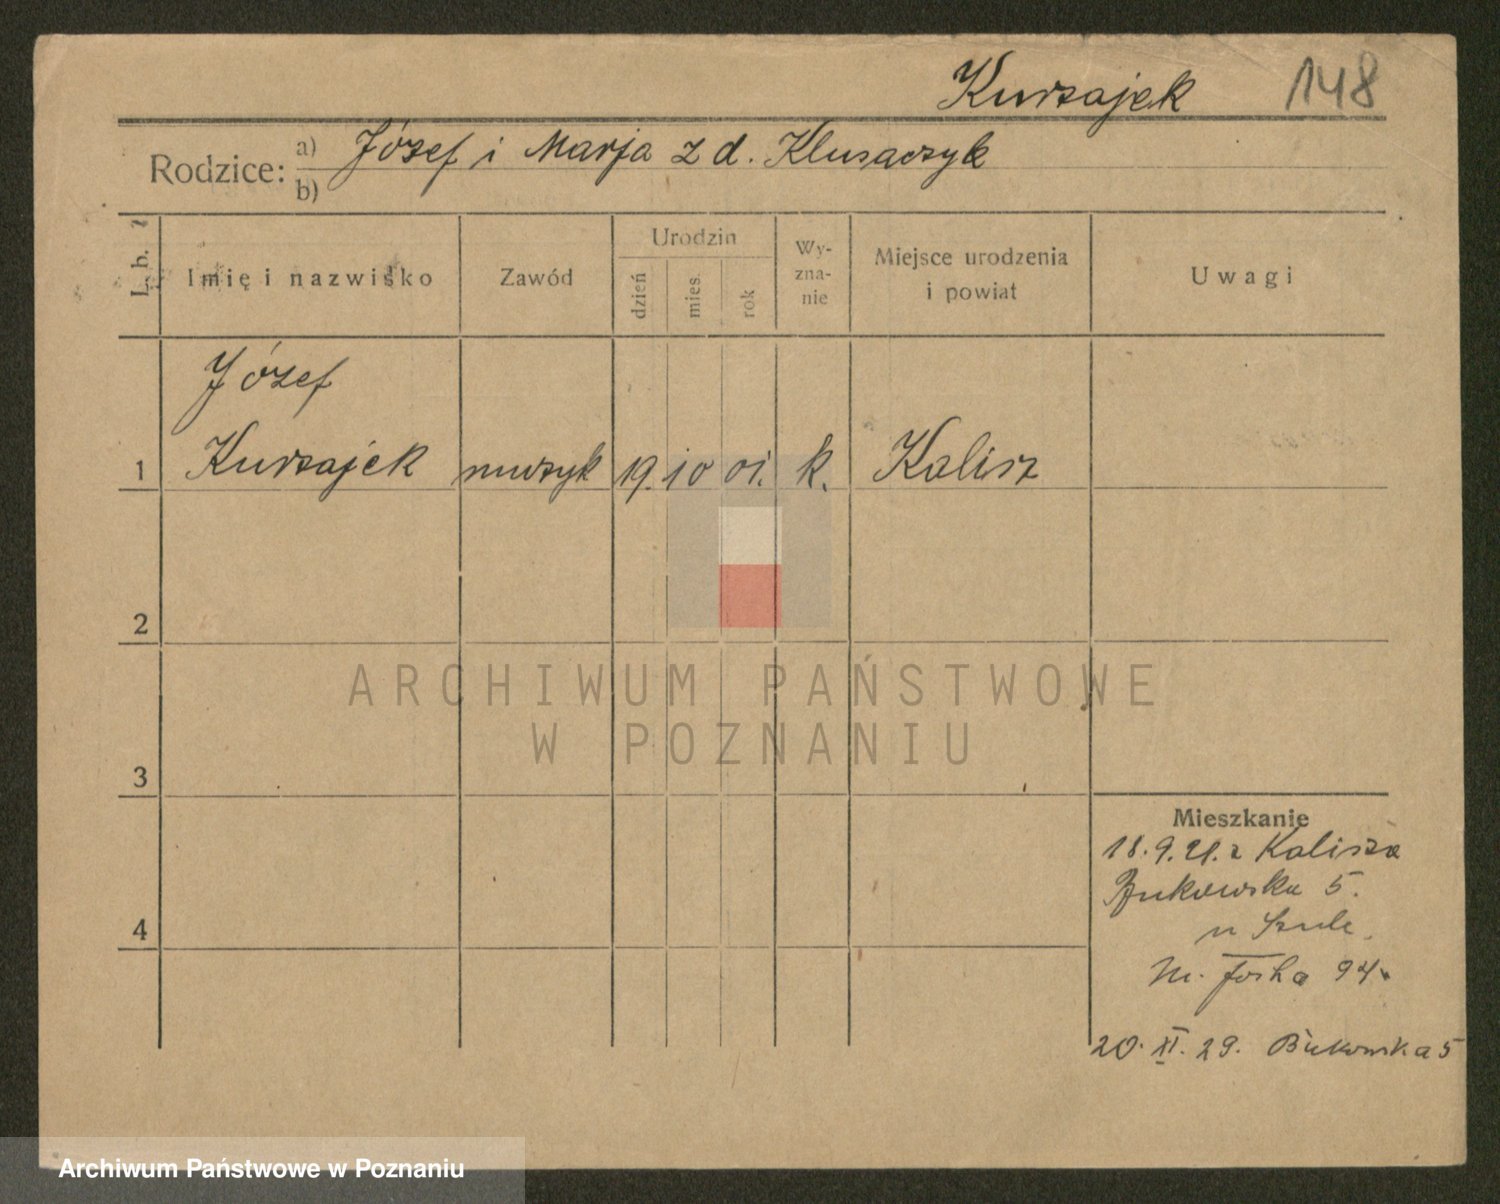 Kurzajek 148
Rodzice: a) Józef i Marja z d. Klusaczyk
b)
L. b.
Imię i nazwisko
Zawód
Urodzin
dzień
mies.
rok
Wy-
zna-
nie
Miejsce urodzenia
i powiat
Uwagi
Józef
1 Kurzajek muzyk 19. 10 01. k. Kalisz
2
3
4
Mieszkanie
18.9.21. z Kalisza
Bukowska 5.
u
M. Focha 94.
20. XI. 29. Bukowska 5
ARCHIWUM PAŃSTWOWE
W POZNANIU
Archiwum Państwowe w Poznaniu